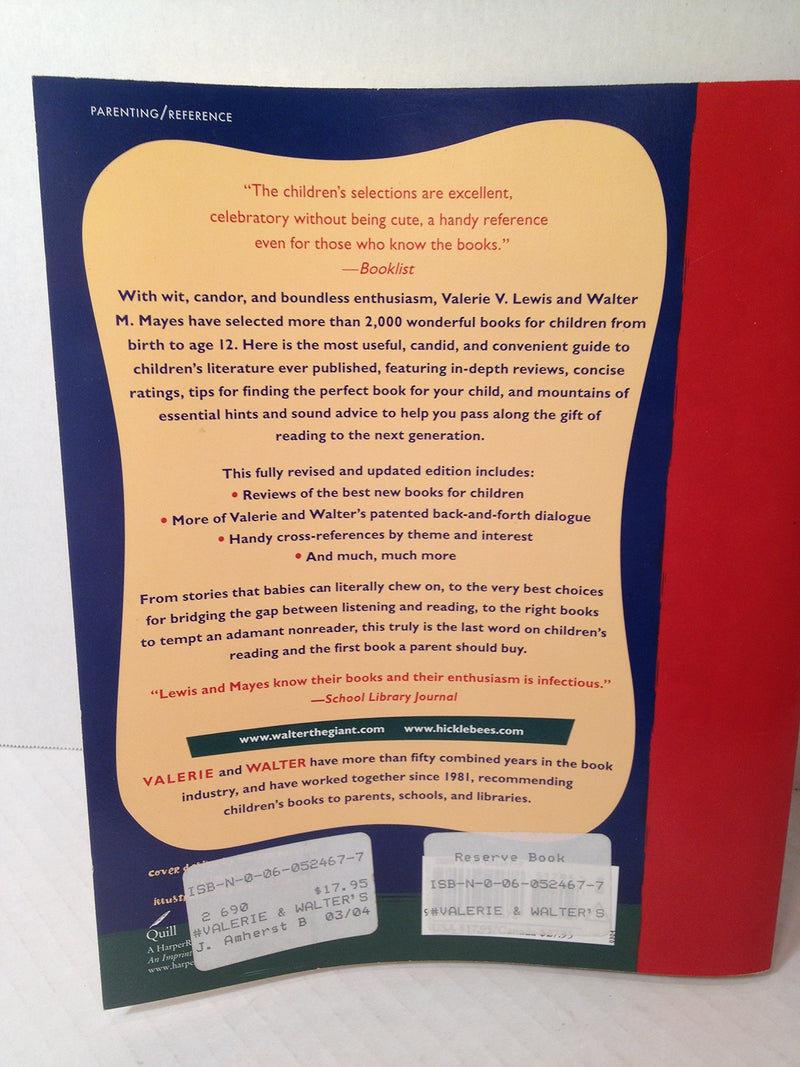 PARENTING/REFERENCE
“The children’s selections are excellent,
celebratory without being cute, a handy reference
even for those who know the books.”
—Booklist
With wit, candor, and boundless enthusiasm, Valerie V. Lewis and Walter
M. Mayes have selected more than 2,000 wonderful books for children from
birth to age 12. Here is the most useful, candid, and convenient guide to
children’s literature ever published, featuring in-depth reviews, concise
ratings, tips for finding the perfect book for your child, and mountains of
essential hints and sound advice to help you pass along the gift of
reading to the next generation.
This fully revised and updated edition includes:
• Reviews of the best new books for children
• More of Valerie and Walter’s patented back-and-forth dialogue
• Handy cross-references by theme and interest
• And much, much more
From stories that babies can literally chew on, to the very best choices
for bridging the gap between listening and reading, to the right books
to tempt an adamant nonreader, this truly is the last word on children’s
reading and the first book a parent should buy.
“Lewis and Mayes know their books and their enthusiasm is infectious.”
—School Library Journal
www.walterthegiant.com www.hicklebees.com
VALERIE and WALTER have more than fifty combined years in the book
industry, and have worked together since 1981, recommending
children’s books to parents, schools, and libraries.
cover
Quill
A HarperR
An Imprint
www.harpe
ISB-N-0-06-052467-7
$17.95
2 690
#VALERIE & WALTER'S
J. Amherst B 03/04
Reserve Book
ISB-N-0-06-052467-7
s#VALERIE & WALTER'S
USA $17.95/Canada $27.95
0304